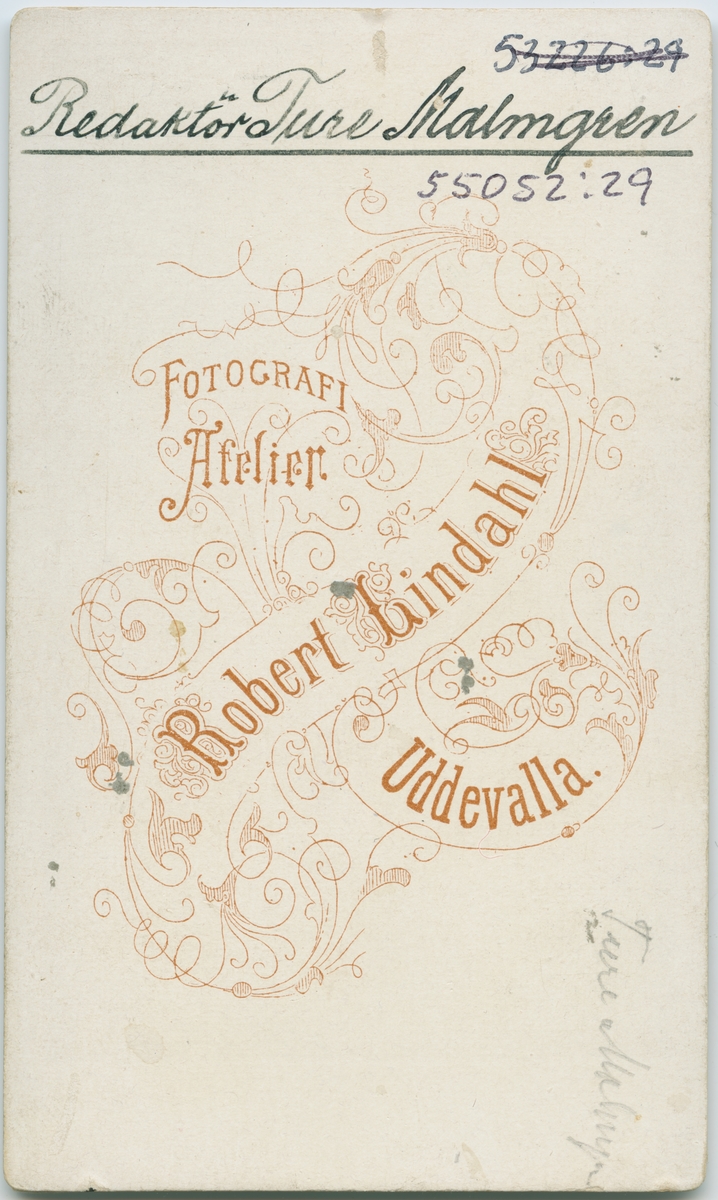 53226:29
Redaktör Ture Malmgren
55052:29
FOTOGRAFI
Atelier
Robert Lindahl
Uddevalla.
Ture Malmgren